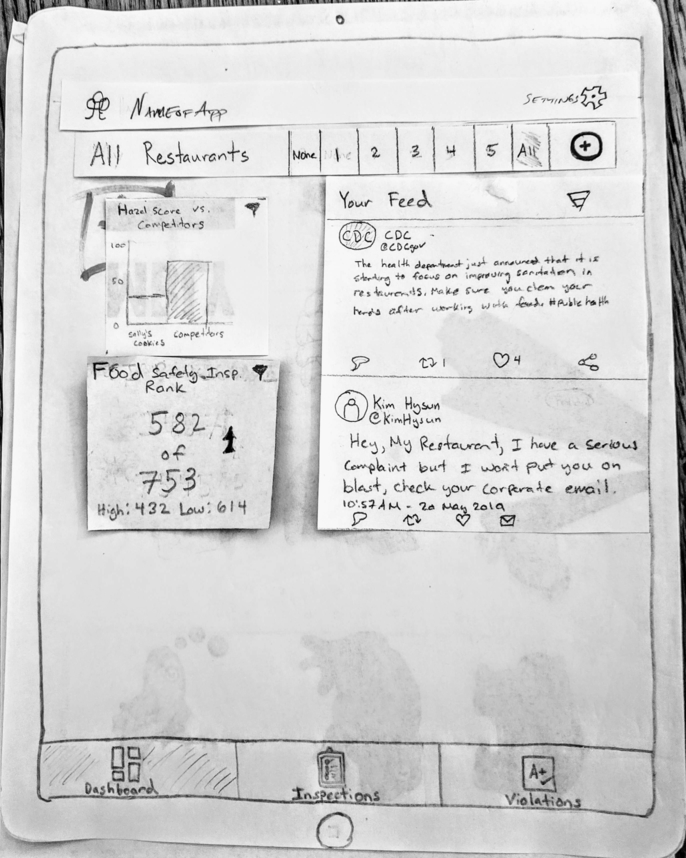 Name of App
Settings
All Restaurants
None 1 2 3 4 5 All
Hazel Score vs.
Competitors
100
50
0
Sally's
Cookies
Competitors
Food Safety Insp.
Rank
582
of
753
High: 432 Low: 614
Your Feed
CDC
CDC
@CDCgov
The health department just announced that it is
starting to focus on improving sanitation in
restaurants. Make sure you clean your
hands after working with food. #Publichealth
1
4
Kim Hysun
@KimHysun
Hey, My Restaurant, I have a serious
complaint but I won't put you on
blast, check your corporate email.
10:57 AM - 20 May 2019
Dashboard
Inspections
A+
Violations